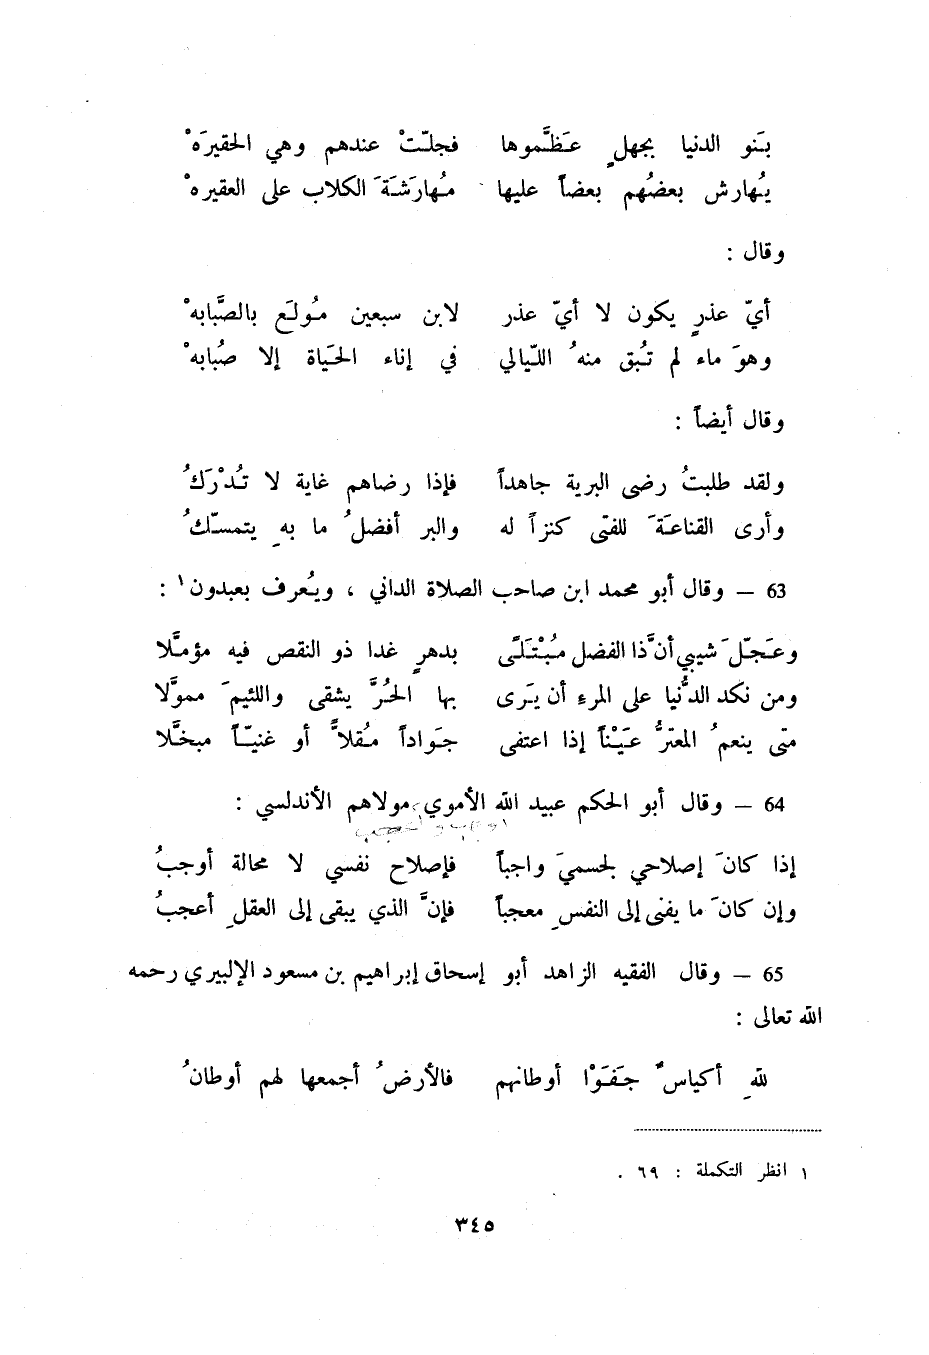 بَنو الدنيا بجهلٍ عَظَّموها فجلّتْ عندهم وهي الحقيرَهْ
يُهارش بعضُهم بعضاً عليها مُهارَشَةَ الكلاب على العقيرهْ
وقال :
أيّ عذرٍ يكون لا أيّ عذر لابن سبعين مُولَع بالصَّبابهْ
وهوَ ماء لم تُبق منهُ اللّيالي في إناء الحَياة إلا صُبابهْ
وقال أيضاً :
ولقد طلبتُ رضى البرية جاهداً فإذا رضاهم غاية لا تُدْرَكُ
وأرى القناعَةَ للفتى كنزاً له والبر أفضلُ ما بهِ يتمسّكُ
63 — وقال أبو محمد ابن صاحب الصلاة الداني ، ويُعرف بعبدون١ :
وعَجّلَ شيبي أنَّ ذا الفضل مُبْتَلًى بدهرٍ غدا ذو النقص فيه مؤمَّلا
ومن نكد الدُّنيا على المرءِ أن يَرى بها الحُرَّ يشقى واللئيمَ ممولَّا
متى ينعمُ المعترُّ عَيْناً إذا اعتفى جَواداً مُقلاًّ أو غنيّاً مبخَّلا
64 — وقال أبو الحكم عبيد الله الأموي مولاهم الأندلسي :
إذا كانَ إصلاحي لجسميَ واجباً فإصلاح نفسي لا محالة أوجبُ
وإن كانَ ما يفنى إلى النفسِ معجباً فإنَّ الذي يبقى إلى العقلِ أعجبُ
65 — وقال الفقيه الزاهد أبو إسحاق إبراهيم بن مسعود الإلبيري رحمه
الله تعالى :
للهِ أكياسٌ جَفَوْا أوطانهم فالأرضُ أجمعها لهم أوطانُ
١ انظر التكملة : ٦٩ .
٣٤٥